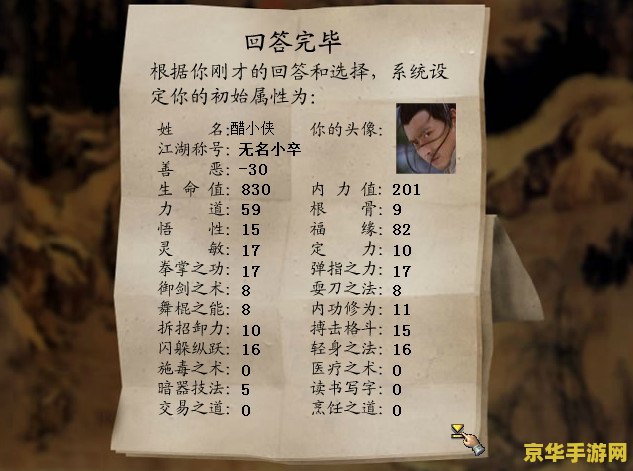 回答完毕
根据你刚才的回答和选择，系统设
定你的初始属性为：
姓 名:醋小侠 你的头像:
江湖称号: 无名小卒
善 恶: -30
生命值: 830 内力值: 201
力 道: 59 根 骨: 9
悟 性: 15 福 缘: 82
灵 敏: 17 定 力: 10
拳掌之功: 17 弹指之力: 17
御剑之术: 8 耍刀之法: 8
舞棍之能: 8 内功修为: 11
拆招卸力: 10 搏击格斗: 15
闪躲纵跃: 16 轻身之法: 16
施毒之术: 0 医疗之术: 0
暗器技法: 5 读书写字: 0
交易之道: 0 烹饪之道: 0
京华手游网